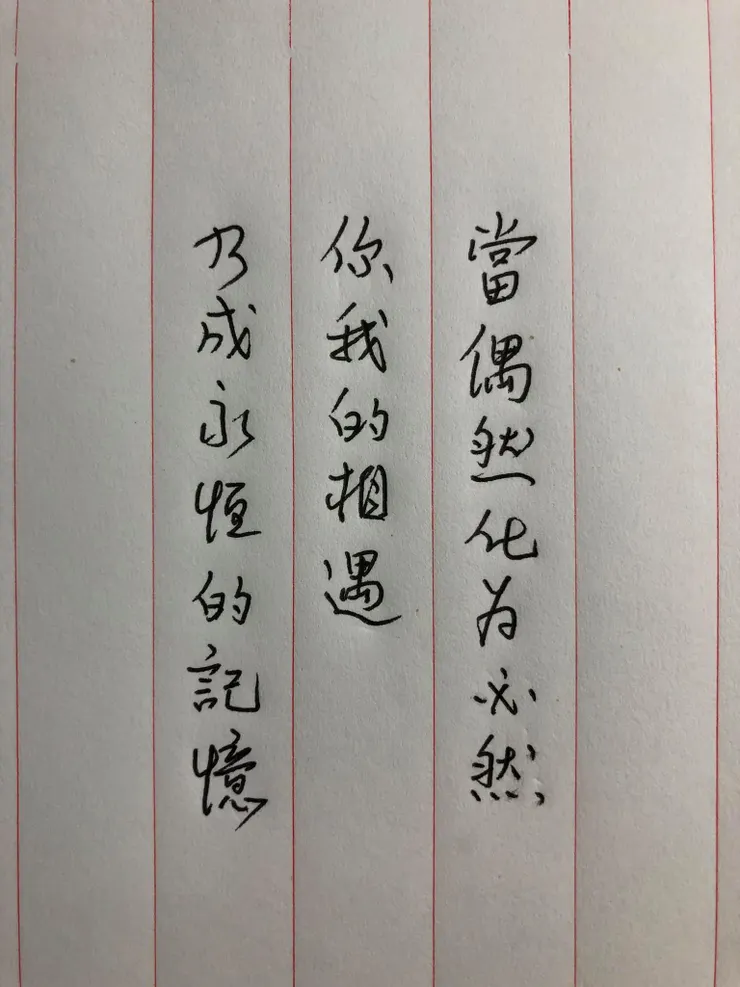 當偶然化为必然
你我的相遇
乃成永恒的記憶